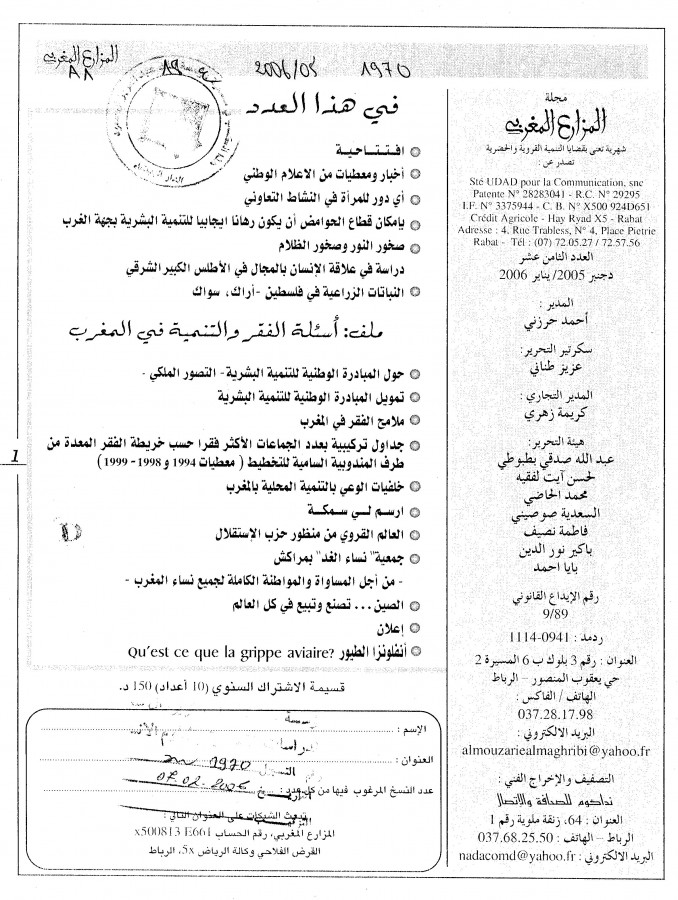 المزارع المغربي
1970
2006/02
في هذا العدد
افـتـتـاحـيـة
أخبار ومعطيات من الاعلام الوطني
أي دور للمرأة في النشاط التعاوني
بإمكان قطاع الحوامض أن يكون رهانا ايجابيا للتنمية البشرية بجهة الغرب
صخور النور وصخور الظلام
دراسة في علاقة الإنسان بالمجال في الأطلس الكبير الشرقي
النباتات الزراعية في فلسطين -أراك، سواك
ملف: أسئلة الفقر والتنمية في المغرب
حول المبادرة الوطنية للتنمية البشرية- التصور الملكي -
تمويل المبادرة الوطنية للتنمية البشرية
ملامح الفقر في المغرب
جداول تركيبية بعدد الجماعات الأكثر فقرا حسب خريطة الفقر المعدة من
طرف المندوبية السامية للتخطيط ( معطيات 1994 و 1998- 1999)
خلفيات الوعي بالتنمية المحلية بالمغرب
ارسم لـي سـمـكـة
العالم القروي من منظور حزب الإستقلال
جمعية" نساء الغد" بمراكش
- من أجل المساواة والمواطنة الكاملة لجميع نساء المغرب -
الصين... تصنع وتبيع في كل العالم
إعلان
أنفلونزا الطيور ?Qu'est ce que la grippe aviaire
1
قسيمة الاشتراك السنوي (10 أعداد) 150 د.
الإسم :
العنوان :
1970
عدد النسخ المرغوب فيها من كل عدد :
07.02.2006
تبعث الشيكات على العنوان التالي :
المزارع المغربي، رقم الحساب x500813 E661
القرض الفلاحي وكالة الرياض 5x، الرباط
مجلة
المزارع المغربي
شهرية تعنى بقضايا التنمية القروية والحضرية
تصدر عن :
Sté UDAD pour la Communication, snc
Patente N° 28283041 - R.C. N° 29295
I.F. N° 3375944 - C. B. N° X500 924D651
Crédit Agricole - Hay Ryad X5 - Rabat
Adresse : 4, Rue Trabless, N° 4, Place Pietrie
Rabat - Tél : (07) 72.05.27 / 72.57.56
العدد الثامن عشر
دجنبر 2005/ يناير 2006
المدير :
أحمد حرزني
سكرتير التحرير:
عزيز طناني
المدير التجاري :
كريمة زهري
هيئة التحرير:
عبد الله صدقي بطبوطي
لحسن آيت لفقيه
محمد الحاضي
السعدية صوصيني
فاطمة نصيف
باكير نور الدين
بابا احمد
رقم الإيداع القانوني
9/89
ردمد : 0941-1114
العنوان : رقم 3 بلوك ب 6 المسيرة 2
حي يعقوب المنصور – الرباط
الهاتف / الفاكس :
037.28.17.98
البريد الالكتروني :
almouzariealmaghribi@yahoo.fr
التصفيف والإخراج الفني :
نداكوم للصحافة والاتصال
العنوان : 64، زنقة ملوية رقم 1
الرباط – الهاتف : 037.68.25.50
البريد الالكتروني : nadacomd@yahoo.fr